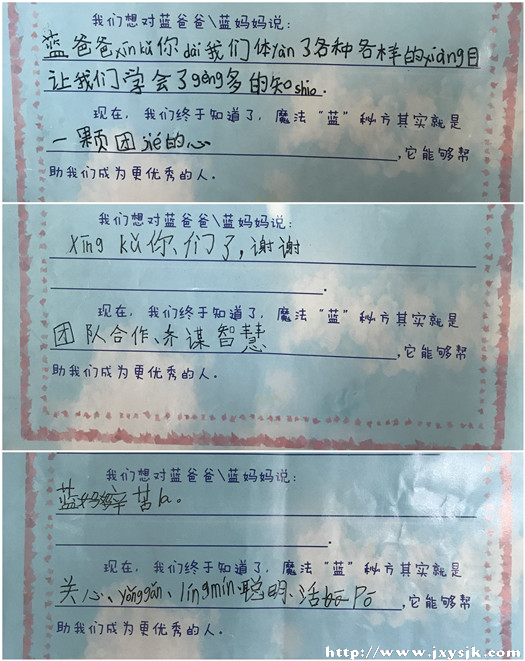 我们想对蓝爸爸\蓝妈妈说:
蓝爸爸xīnkǔ你dài我们体yàn了各种各样的xiàng目
让我们学会了gèng多的知shio.
现在,我们终于知道了,魔法“蓝”秘方其实就是
一颗团jié的心,它能够帮
助我们成为更优秀的人.
我们想对蓝爸爸\蓝妈妈说:
xīng kǔ你们了,谢谢
.
现在,我们终于知道了,魔法“蓝”秘方其实就是
团队合作、养谋智慧,它能够帮
助我们成为更优秀的人.
我们想对蓝爸爸\蓝妈妈说:
蓝妈妈辛苦la。
.
现在,我们终于知道了,魔法“蓝”秘方其实就是
关心、yǒnggǎn、língmín、聪明、活 Pō,它能够帮
助我们成为更优秀的人.
http://www.jxysjk.com